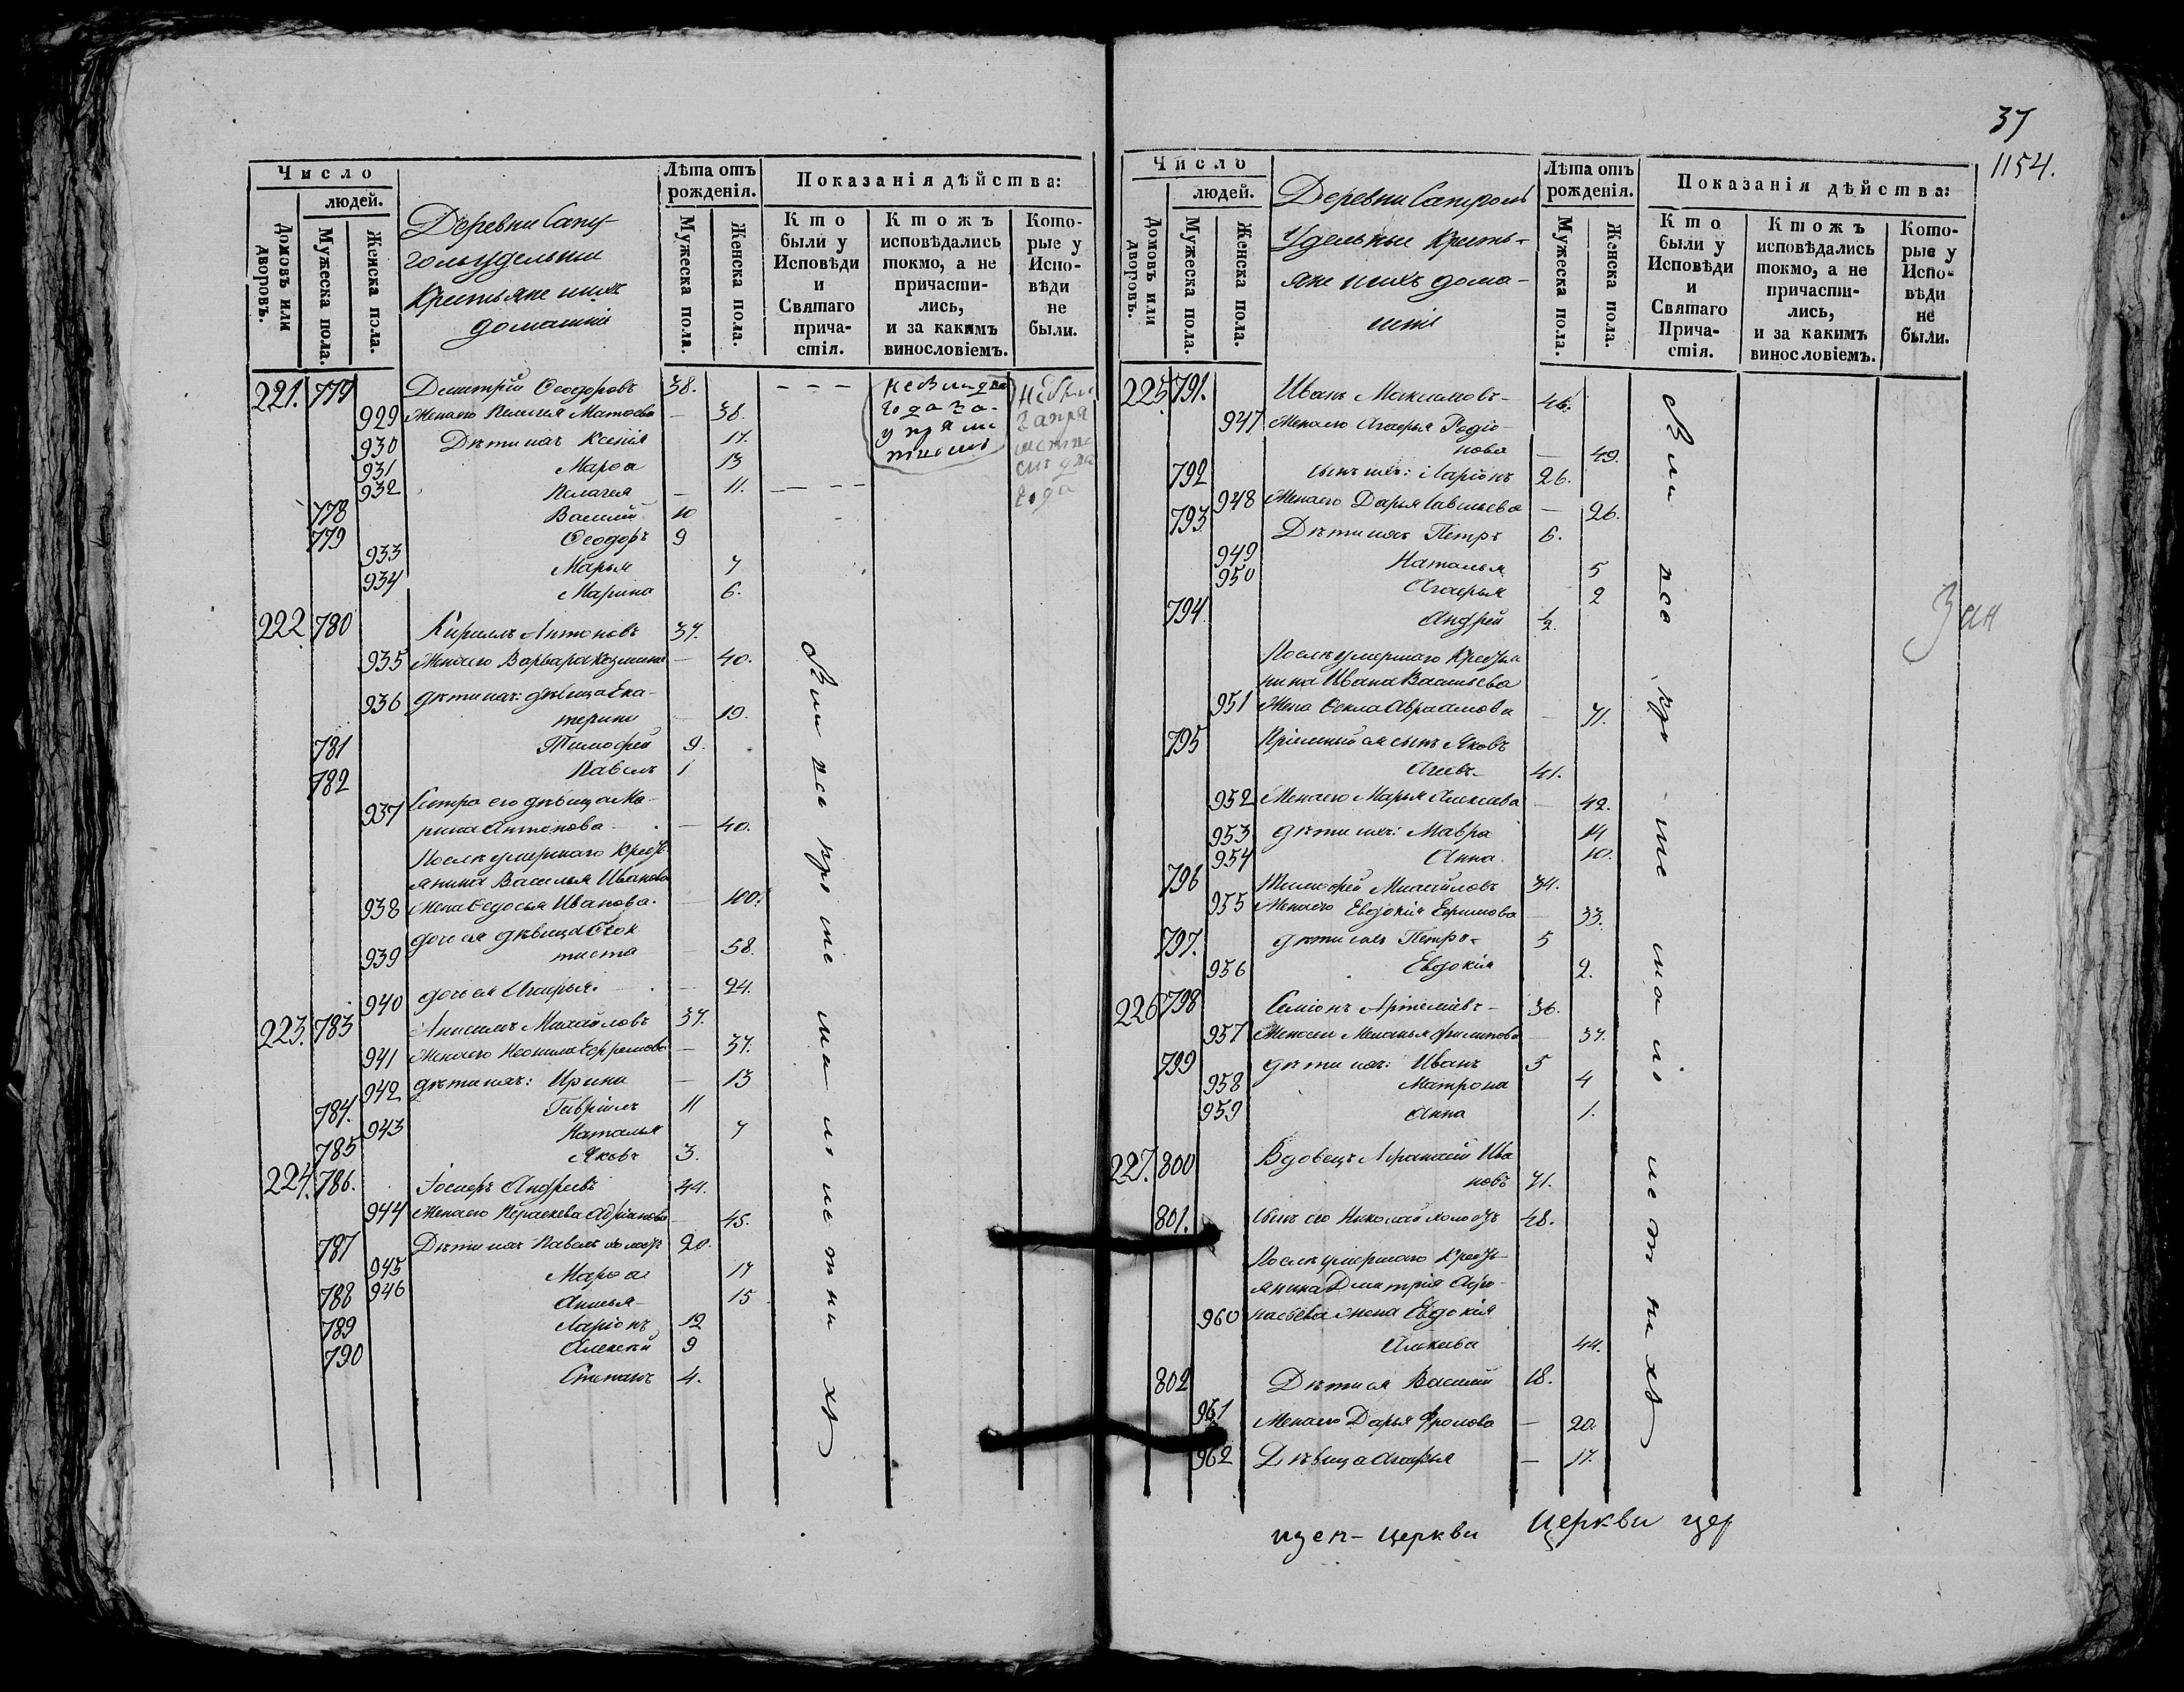 Число
людей.
Домовъ или дворовъ.
Мужеска пола.
Женска пола.
Деревни Сапу-
голы удельныи
Крестьяне ихъ
домашніи
Лѣта отъ рожденія.
Мужеска пола.
Женска пола.
Показанія дѣйства:
Кто были у Исповѣди и Святаго причастія.
Ктожъ исповѣдались токмо, а не причастились, и за какимъ винословіемъ.
Которые у Исповѣди не были.
221. 779 Димитрій Ѳеодоровъ 38.
929 Жена его Пелагея Матѳеева — 38.
930 Дѣти ихъ Ксенія 17.
931 Марѳа 13
932 Пелагея — 11.
778 Василій 10
779 Ѳеодоръ 9
933 Марья 7
934 Марина 6.
222. 780 Кириллъ Антоновъ 37.
935 Жена его Варвара Козмина — 40.
936 дѣти ихъ: дѣвица Ека-
терина — 19.
781 Тимофей 9.
782 Павелъ 1
937 Сестра его дѣвица Ма-
рина Антонова — 40.
Послѣ умершаго Кресть-
янина Василья Иванова
938 Жена Ѳедосья Иванова. — 100.
939 дочь ея дѣвица Ѳеок
тиста — 58.
940 дочь ея Агафья. — 24.
223. 783 Анисимъ Михайловъ 37.
941 Жена его Неонила Ефремова — 37.
942 дѣти ихъ: Ирина — 13
784. Гавріилъ 11
943 Наталья 7
785 Яковъ 3.
224. 786. Іосифъ Андреевъ 44.
944 Жена его Параскева Адріанова — 45.
787 Дѣти ихъ Павелъ холостъ 20.
945 Марѳа 17
788 946 Анисья 15
789 Ларіонъ 12
790 Алексѣй 9
Степанъ 4.
не были два
года за
упрям
ством
не были
за упря
мством
два
года
Вси въ вышеписанныхъ
37
1154.
Число
людей.
Домовъ или дворовъ.
Мужеска пола.
Женска пола.
Деревни
Удельные Кресть-
яне и ихъ дома-
шніи
Лѣта отъ рожденія.
Мужеска пола.
Женска пола.
Показанія дѣйства:
Кто были у Исповѣди и Святаго Причастія.
Ктожъ исповѣдались токмо, а не причастились, и за какимъ винословіемъ.
Которые у Исповѣди не были.
225. 791. Иванъ Максимовъ 46.
947 Жена его Агафья Родіо-
нова — 49.
792 сынъ ихъ: Ларіонъ 26.
948 Жена его Дарья Савельева — 26.
793 Дѣти ихъ Петръ 6.
949 Наталья 5
950 Агафья 2
794 Андрей ½
Послѣ умершаго Кресть
нина Ивана Васильева
951 Жена Ѳекла Авраамова — 71.
795 Пріемный ея сынъ Яковъ
Агеевъ 41.
952 Жена его Марья Алексѣева — 42.
953 дѣти ихъ: Мавра 14
954 Анна 10.
796 Тимофей Михайловъ 34.
955 Жена его Евдокія Ефимова — 33.
797. дѣти ихъ Петръ 5
956 Евдокія 2.
226 798 Симіонъ Артеміевъ 36.
957 Жена его Меланья Филипова — 37.
799 дѣти ихъ: Иванъ 5
958 Матрона 4
959 Анна 1.
227. 800 Вдовецъ Афанасій Ива
новъ 71.
801. сынъ его Николай холостъ 48.
Послѣ умершаго Кресть-
янина Дмитрія Афо-
960 насьева жена Евдокія
Алексѣева 44.
802 Дѣти ея Василій 18.
961 Жена его Дарья Фролова — 20.
962 Дѣвица Агафья — 17.
Зан
церкви Церкви цер